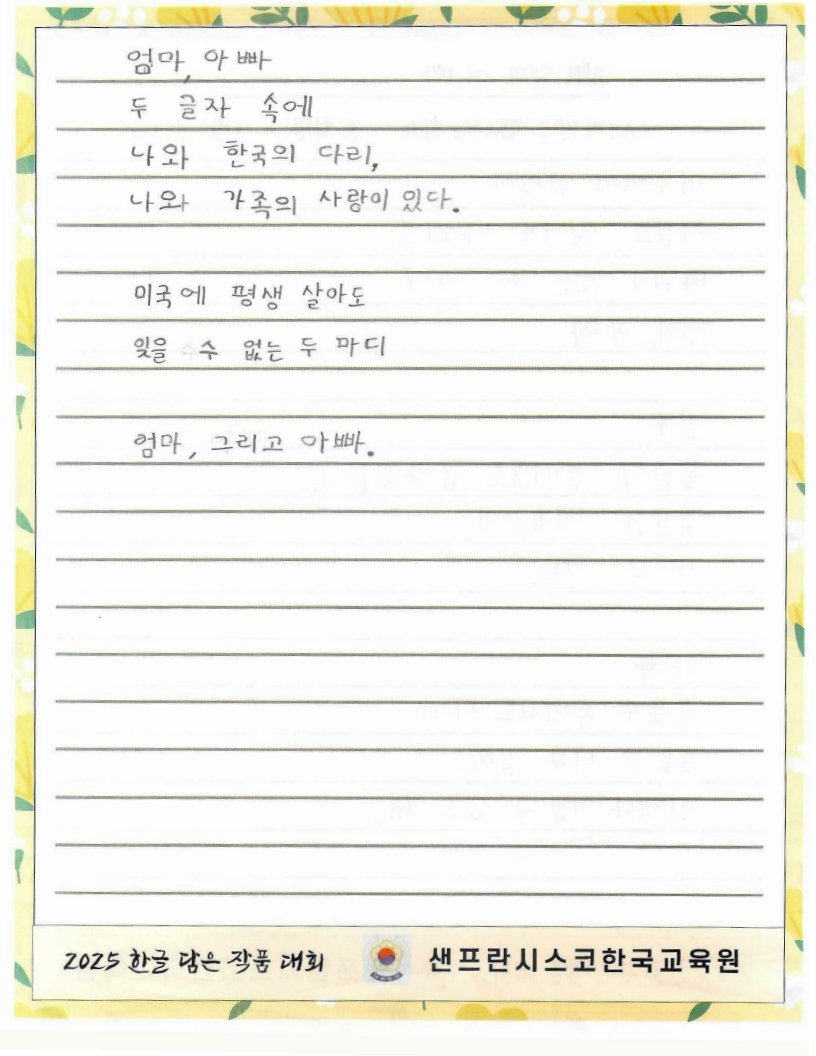 엄마, 아빠
두 글자 속에
나와 한국의 다리,
나와 가족의 사랑이 있다.
미국에 평생 살아도
잊을 수 없는 두 마디
엄마, 그리고 아빠.
2025 한글 담은 작품 대회
샌프란시스코한국교육원